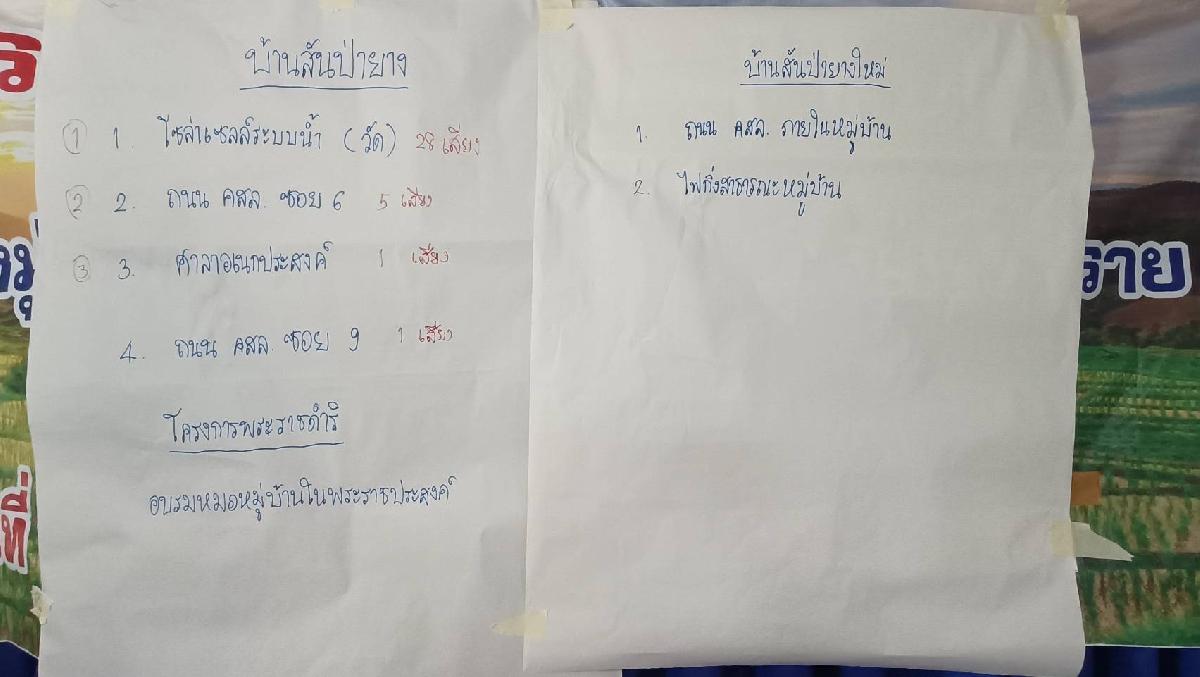 บ้านสันป่ายาง
① 1. โซล่าเซลล์ระบบน้ำ (วัด) 28 เสียง
② 2. ถนน คสล. ซอย 6 5 เสียง
③ 3. ศาลาอเนกประสงค์ 1 เสียง
4. ถนน คสล. ซอย 9 1 เสียง
โครงการพระราชดำริ
อบรมหมอหมู่บ้านในพระราชประสงค์
บ้านสันป่ายางใหม่
1. ถนน คสล. ภายในหมู่บ้าน
2. ไฟกิ่งสาธารณะหมู่บ้าน
ราย
ที่